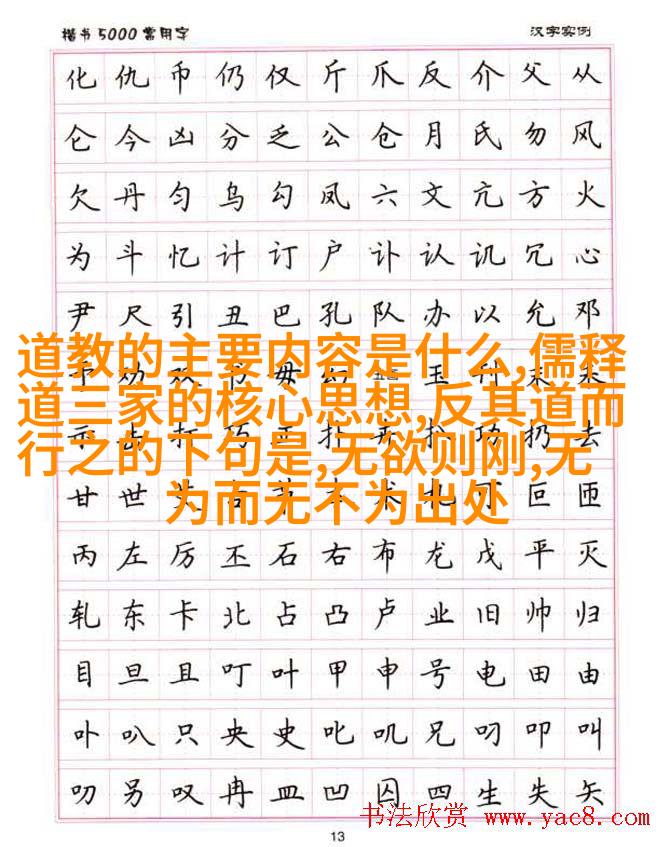 楷书5000常用字 汉字实例
化仇币仍仅斤爪反介父从
仑今凶分乏公仓月氏勿风
欠丹匀乌勾凤六文亢方火
为斗忆计订户讣认讥冗心
尹尺引丑巴孔队办以允邓
道教的主要内容是什么,儒释
道三家的核心思想,反其道而
行之的下句是,无欲则刚,无
为而无不为出处
甘世
丙左厉丕石右布龙戊平灭
轧东卡北占凸卢业旧帅归
目旦且叮叶甲申号电田由
卟叭只央史叱叽兄叼叩叫
叨另叹冉皿凹囚四生失矢
书法欣赏 www.yac8.com
13